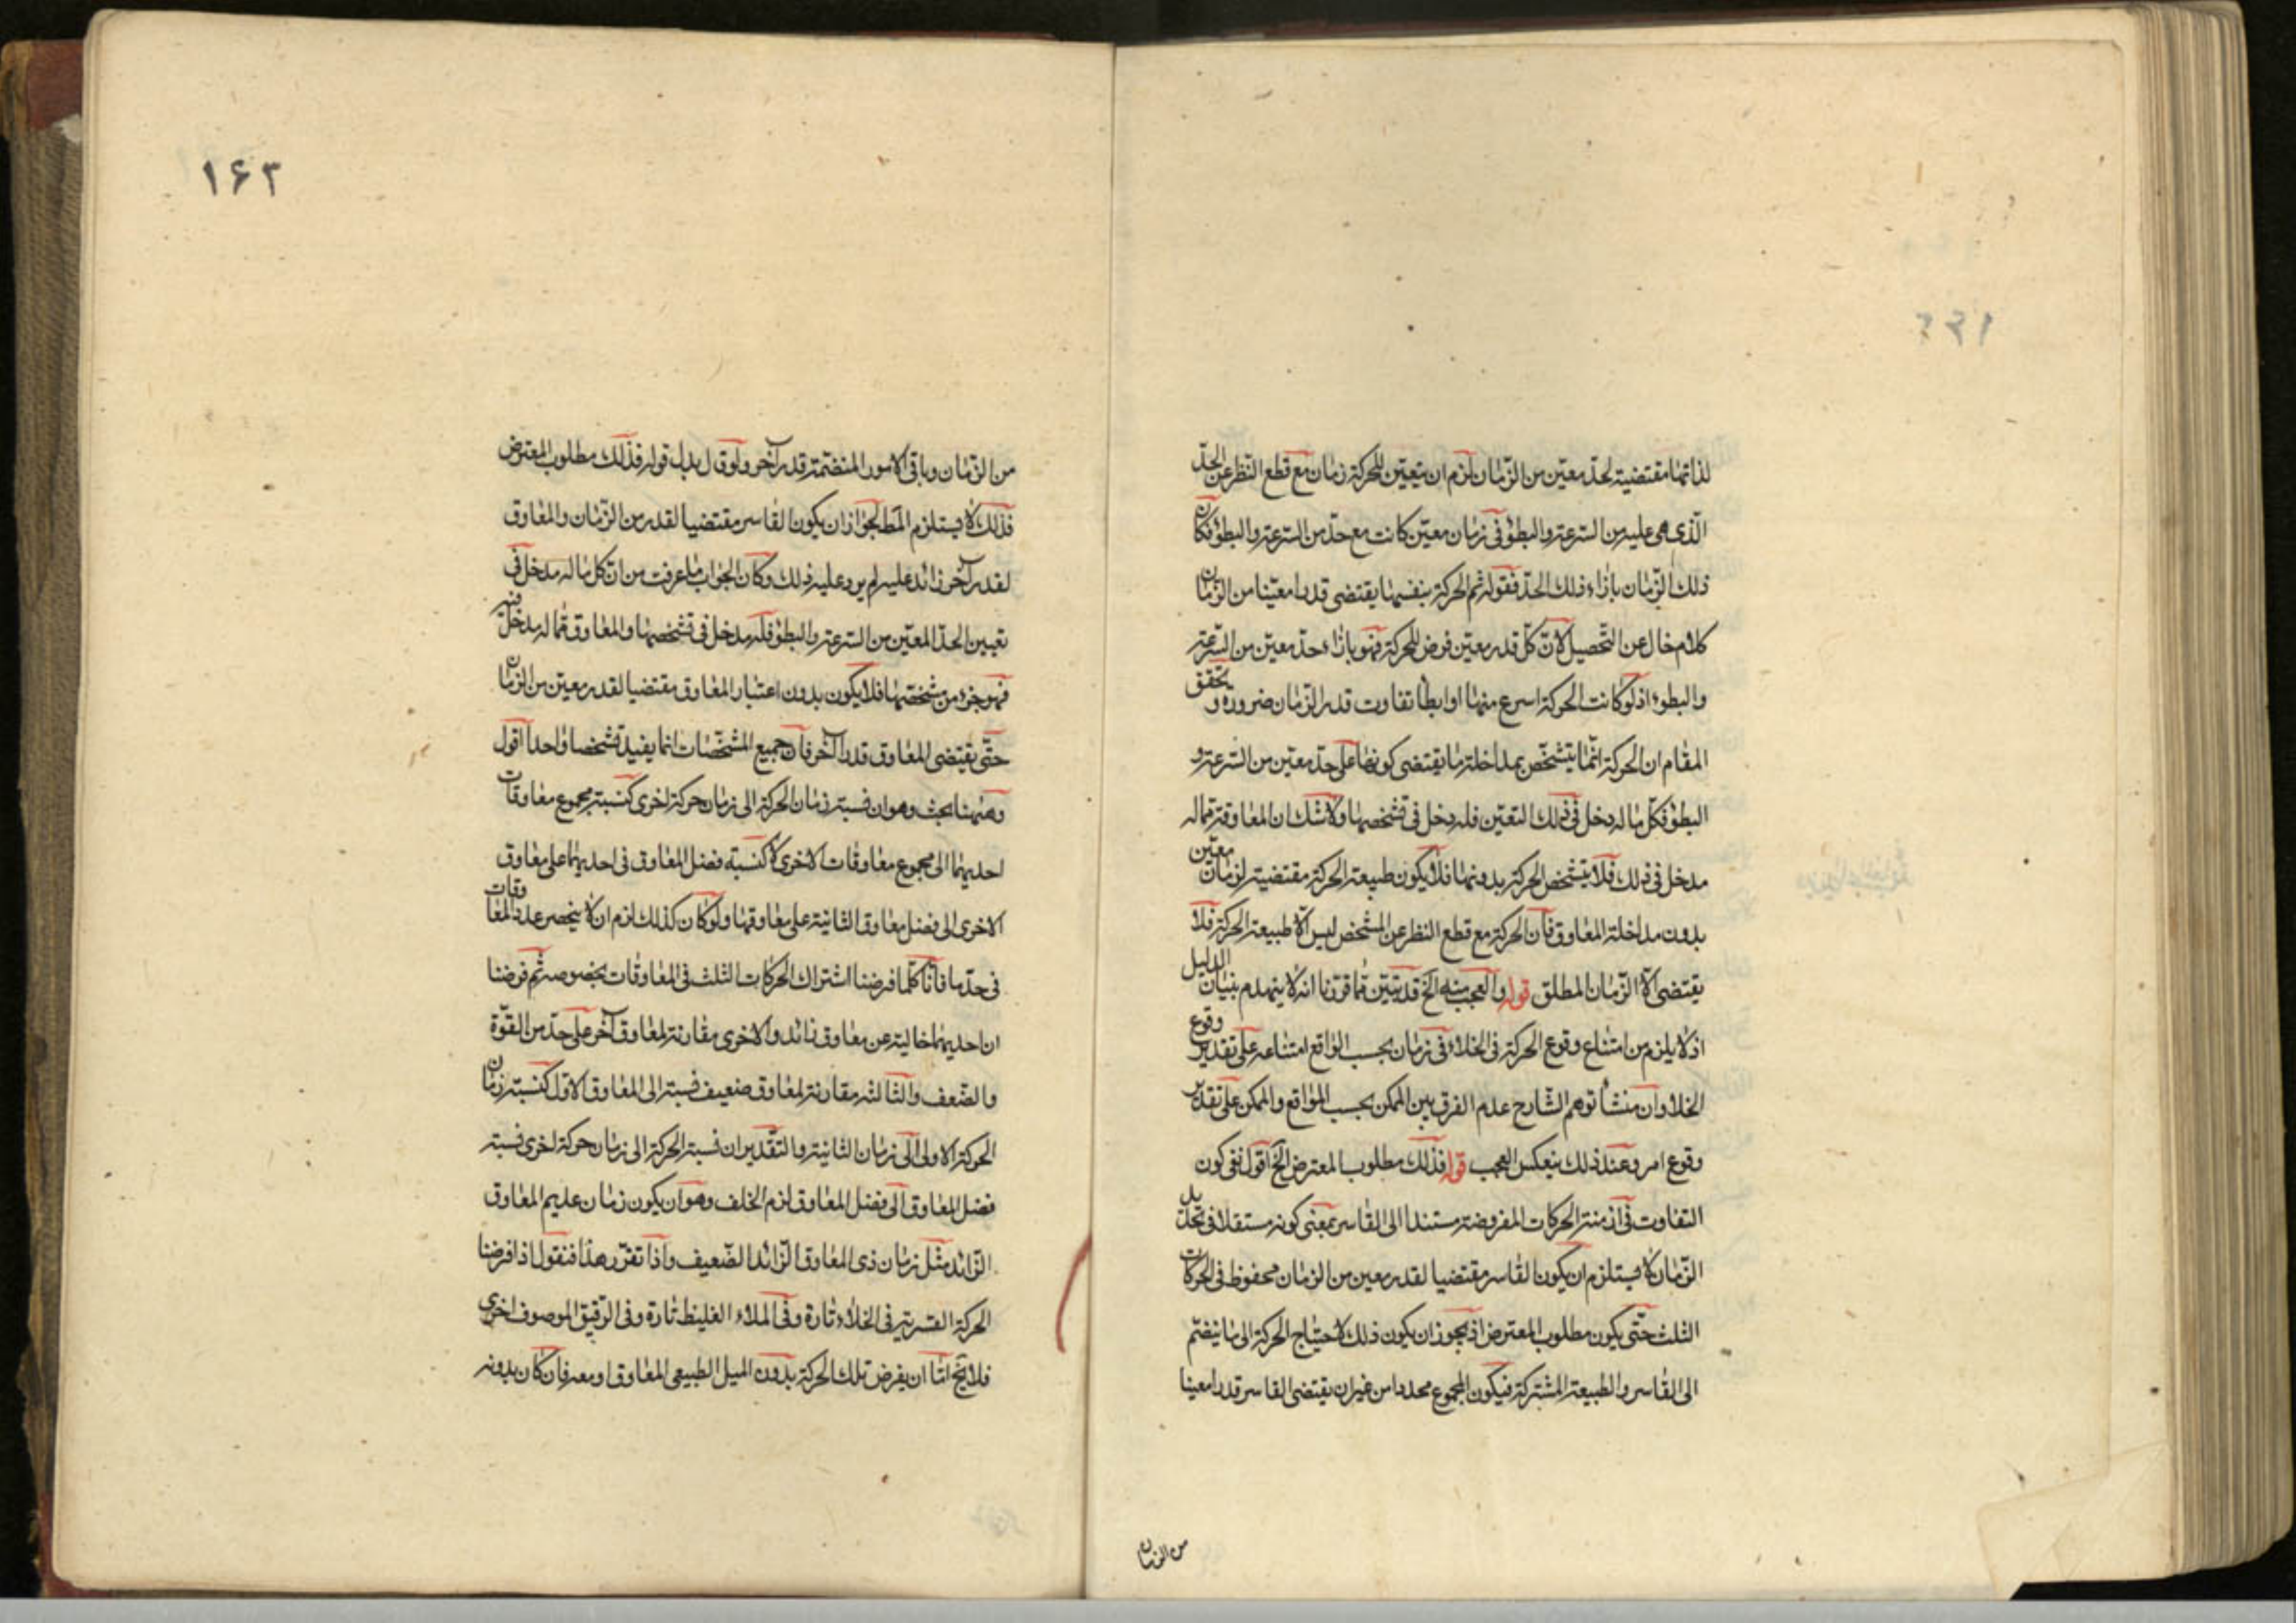 لذاتها مقتضية لحد معين من الزمان لزم ان يتعين للحركة زمان مع قطع النظر عن الحد
الذى هى عليه من السرعة والبطؤ فى زمان معين كانت مع حد من السرعة والبطؤ فكان
ذلك الزمان بازاء ذلك الحد فقوله ثم الحركة بنفسها يقتضى قدرا معينا من الزمان
كلام خال عن التحصيل لان كل قدر معين فرض للحركة فهو بازاء حد معين من السرعة
والبطوء اذ لو كانت الحركة اسرع منها او ابطأ تفاوت قدر الزمان ضرورة و تحقق
المقام ان الحركة انما يتشخص بمداخلة ما يقتضى كونها على حد معين من السرعة و
البطؤ فكل ما له دخل فى ذلك التعين فله دخل فى تشخصها ولا شك ان المعاوقة مما له
مدخل فى ذلك فلا يتشخص الحركة بدونها فلا يكون طبيعة الحركة مقتضية لزمان معين
بدون مداخلة المعاوق فان الحركة مع قطع النظر عن المشخص ليس الا طبيعة الحركة فلا
يقتضى الا الزمان المطلق قوله والعجب منه الخ قد تبين مما قررنا انه لا ينهدم بنيان الدليل
اذ لا يلزم من امتناع وقوع الحركة فى الخلاء فى زمان بحسب الواقع امتناعه على تقدير وقوع
الخلا وان منشأ توهم الشارح عدم الفرق بين الممكن بحسب الواقع والممكن على تقدير
وقوع امر وعند ذلك ينعكس العجب قوله فذلك مطلوب المعترض الخ اقول نفى كون
التفاوت فى ازمنة الحركات المفروضة مستندا الى القاسر بمعنى كونه مستقلا فى تحديد
الزمان لا يستلزم ان يكون القاسر مقتضيا لقدر معين من الزمان محفوظ فى الحركات
الثلث حتى يكون مطلوب المعترض اذ يجوز ان يكون ذلك لاحتياج الحركة الى ما ينضم
الى القاسر والطبيعة المشتركة فيكون المجموع محددا من غير ان يقتضى القاسر قدرا معينا
من الزمان
١۶٣
من الزمان وباقى الامور المنضمة قدر آخر ولو قال بدل قوله فذلك مطلوب المعترض
فذلك لا يستلزم المط لجواز ان يكون القاسر مقتضيا لقدر من الزمان والمعاوق
لقدر آخر زائد عليه لم يرد عليه ذلك وكان الجواب ما عرفت من ان كل ما له مدخل فى
تعيين الحد المعين من السرعة والبطؤ فله مدخل فى تشخصها والمعاوق مما له مدخل فيه
فهو جزء من مشخصها فلا يكون بدون اعتبار المعاوق مقتضيا لقدر معين من الزمان
حتى يقتضى المعاوق قدرا آخر فان جميع المشخصات انما يفيد تشخصا واحدا اقول
وههنا بحث وهو ان نسبة زمان الحركة الى زمان حركة اخرى كنسبة مجموع معاوقات
احديهما الى مجموع معاوقات الاخرى لا كنسبة فضل المعاوق فى احديهما على معاوق
الاخرى الى فضل معاوق الثانية على معاوقها ولو كان كذلك لزم ان لا ينحصر عدد المعاوقات
فى حد ما فانا كلما فرضنا اشتراك الحركات الثلث فى المعاوقات بخصوصه ثم فرضنا
ان احديهما خالية عن معاوق زائد والاخرى مقارنة لمعاوق آخر على حد من القوة
والضعف والثالثة مقارنة لمعاوق ضعيف نسبته الى المعاوق الاول كنسبة زمان
الحركة الاولى الى زمان الثانية والتقدير ان نسبة الحركة الى زمان حركة اخرى نسبة
فضل المعاوق الى فضل المعاوق لزم الخلف وهو ان يكون زمان عديم المعاوق
الزائد مثل زمان ذى المعاوق الزائد الضعيف واذا تقرر هذا فنقول اذا فرضنا
الحركة القسرية فى الخلاء تارة وفى الملاء الغليظ تارة وفى الرقيق الموصوف اخرى
فلا يخ اما ان يفرض تلك الحركة بدون الميل الطبيعى المعاوق او معه فان كان بدونه